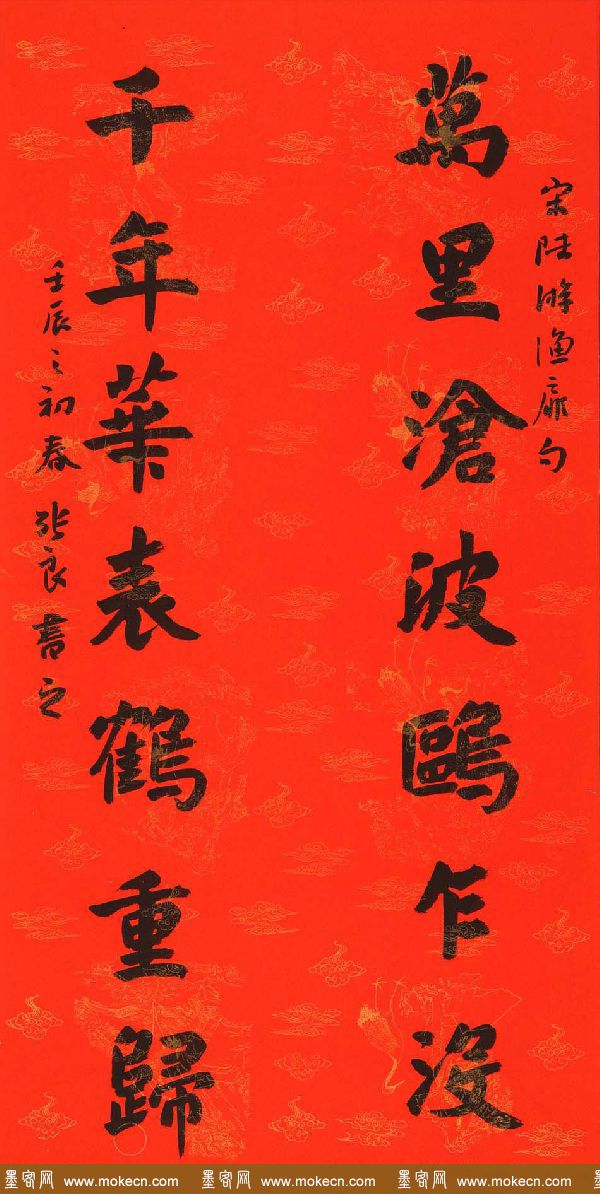 宋陆游渔扉句
萬里滄波鷗乍没
千年華表鶴重歸
壬辰之初春 张良書之
墨客网 www.mokecn.com 墨客网 www.mokecn.com 墨客网 www.mokecn.com